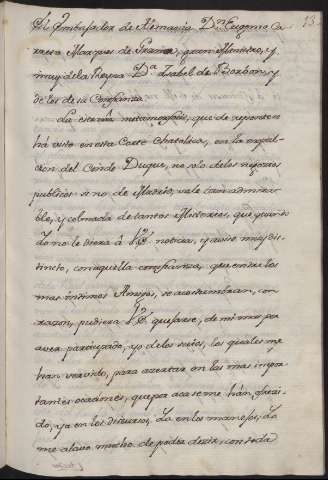 Al Embajador de Alemania Dn. Eugenio Ca
rreto Marques de Grana, gran Ministro, y
muy de la Reyna Da. Isabel de Borbon, y
de los de su Confianza.
La estraña metamorfosis, que de repente se
há visto en esta Corte Chatolica, en la expul-
cion del Conde Duque, no solo de los negocios
publicos si no de Madrid, vale tan admira-
ble, y colmada de tantos Misterios, que quando
Io no le diera à V.E. noticia, y aviso muy dis-
tincto, con aquella confianza, que entre los
mas intimos Amigos, se acostumbran, con
razon, pudiera V.E. quejarse, de mi mas por
aver participado, yo de los suios, los quales me
han servido, para acertar en las mas impor-
tantes ocasiones, que por aca se me hán ofreci-
do, ya en los discursos, Ia en los manejos; Io
me alavo mucho de poder decir, con toda